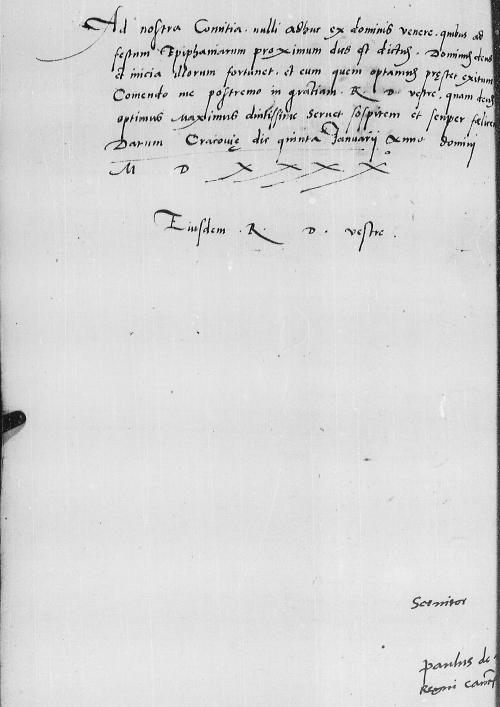 Ad nostra Comitia. nulli adhuc ex dominis venere. quibus ad
festum Epiphaniarum proximum dies est dictus. Dominus deus
et inicia illorum fortunet. et eum quem optamus pręstet exitum
Comendo me postremo in gratiam. R. D. vestre. quam deus
optimus Maximus diutissime servet sospitem et semper felicem
Datum Cracovię die quinta Januarij Anno domini
M D X X X X
Eiusdem . R. D. vestre.
Servitor
paulus de
Regni Canc